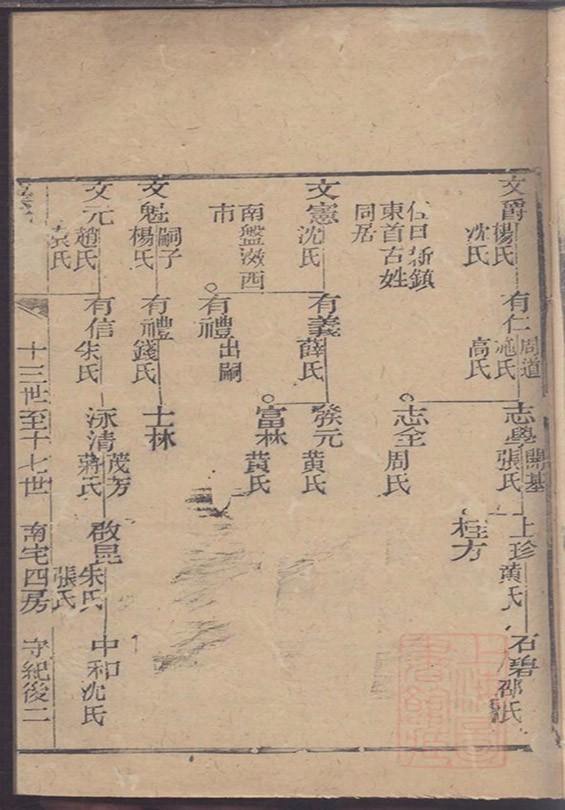 文爵 楊氏 沈氏
有仁 周道 施氏 高氏
志學 開基 張氏
上珍 黄氏
石碧 邵氏
桂方
住日新鎮
東首古姓
同居
志全 周氏
文憲 沈氏
有義 薛氏
癸元 黄氏
富林 黄氏
南盤滧西
市
有禮 出嗣
文魁 嗣子 楊氏
有禮 錢氏
士林
文元 趙氏 袁氏
有信 朱氏
泳清 茂芳 蔣氏
啟昆 朱氏 張氏
中和 沈氏
十三世至十七世 南宅四房 守紀後二